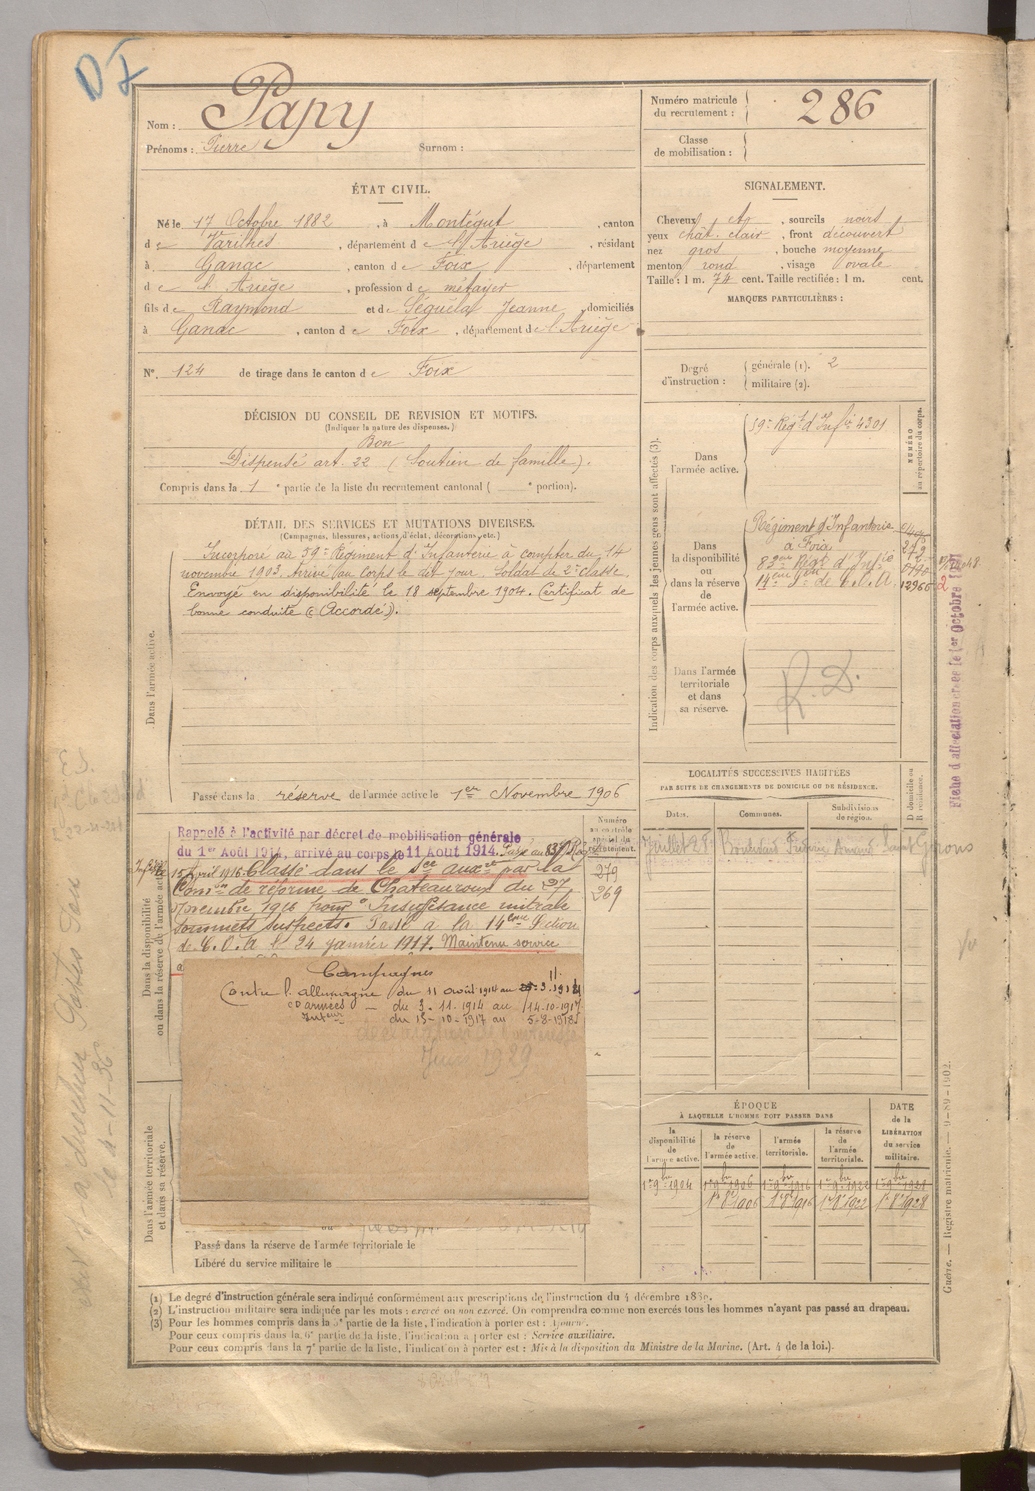 DF
Nom : Papy
Prénoms : Pierre Surnom :
Numéro matricule du recrutement : 286
Classe de mobilisation :
ÉTAT CIVIL.
Né le 17 Octobre 1882, à Montégut, canton
de Varilhes, département de l'Ariège, résidant
à Ganac, canton de Foix, département
de l'Ariège, profession de métayer
fils de Raymond et de Séguéla Jeanne, domiciliés
à Ganac, canton de Foix, département de l'Ariège
N° 124 de tirage dans le canton de Foix
SIGNALEMENT.
Cheveux et, sourcils noirs
yeux chât. clair, front découvert
nez gros, bouche moyenne
menton rond, visage ovale
Taille : 1 m. 74 cent. Taille rectifiée : 1 m. cent.
MARQUES PARTICULIÈRES :
Degré d'instruction : générale (1). 2
militaire (2).
DÉCISION DU CONSEIL DE REVISION ET MOTIFS.
(Indiquer la nature des dispenses.)
Bon
Dispensé art. 22 (Soutien de famille).
Compris dans la 1e partie de la liste du recrutement cantonal ( e portion).
DÉTAIL DES SERVICES ET MUTATIONS DIVERSES.
(Campagnes, blessures, actions d'éclat, décorations, etc.)
Dans l'armée active.
Incorporé au 59e Régiment d'Infanterie à compter du 14
novembre 1903. Arrivé au corps le dit jour. Soldat de 2e classe.
Envoyé en disponibilité le 18 septembre 1904. Certificat de
bonne conduite "Accordé".
Passé dans la réserve de l'armée active le 1er Novembre 1906
Indication des corps auxquels les jeunes gens sont affectés (3).
NUMÉRO au répertoire du corps.
Dans l'armée active.
59e Régt d'Infie 4301
Dans la disponibilité ou dans la réserve de l'armée active.
Régiment d'Infanterie
à Foix
83ème Régt d'Infie
14ème Son de C.O.A. 12966
Dans l'armée territoriale et dans sa réserve.
R. D.
Fiche d'affectation créée le 1er Octobre
LOCALITÉS SUCCESSIVES HABITÉES
PAR SUITE DE CHANGEMENTS DE DOMICILE OU DE RÉSIDENCE.
Dates. Communes. Subdivisions de région. D domicile ou R résidence.
Juillet 28 Boulevard Saint Girons
Dans la disponibilité ou dans la réserve de l'armée active
Numéro au contrôle spécial du recrutement.
279
269
Rappelé à l'activité par décret de mobilisation générale
du 1er Août 1914, arrivé au corps le 11 Aout 1914.
15 Avril 1916. Classé dans le Sce auxre par la
Comon de réforme de Chateauroux du 27
novembre 1916 pour "Insuffisance mitrale
sommets suspects". Passé à la 14ème Section
de C.O.A le 24 janvier 1917. Maintenu service
Campagnes
Contre l'allemagne du 11 août 1914 au
cx armées — du 3.11.1914 au 14-10-1917
Intérieur du 15-10-1917 au 5-8-1918
Juin 1929
Dans l'armée territoriale et dans sa réserve.
Passé dans la réserve de l'armée territoriale le
Libéré du service militaire le
ÉPOQUE
À LAQUELLE L'HOMME DOIT PASSER DANS
la disponibilité de l'armée active. la réserve de l'armée active. l'armée territoriale. la réserve de l'armée territoriale. DATE de la LIBÉRATION du service militaire.
1er 9bre 1904 1er 9bre 1906 1er 9bre 1916 1er 9bre 1922
1er 8e 1906 1er 8e 1916 1er 8e 1922 1er 8e 1928
Guerre. — Registre matricule. — 9-89-1902.
le 4-11-36
(1) Le degré d'instruction générale sera indiqué conformément aux prescriptions de l'instruction du 4 décembre 1889.
(2) L'instruction militaire sera indiquée par les mots : exercé ou non exercé. On comprendra comme non exercés tous les hommes n'ayant pas passé au drapeau.
(3) Pour les hommes compris dans la 5e partie de la liste, l'indication à porter est : Ajourné.
Pour ceux compris dans la 6e partie de la liste, l'indication à porter est : Service auxiliaire.
Pour ceux compris dans la 7e partie de la liste, l'indication à porter est : Mis à la disposition du Ministre de la Marine. (Art. 4 de la loi.).